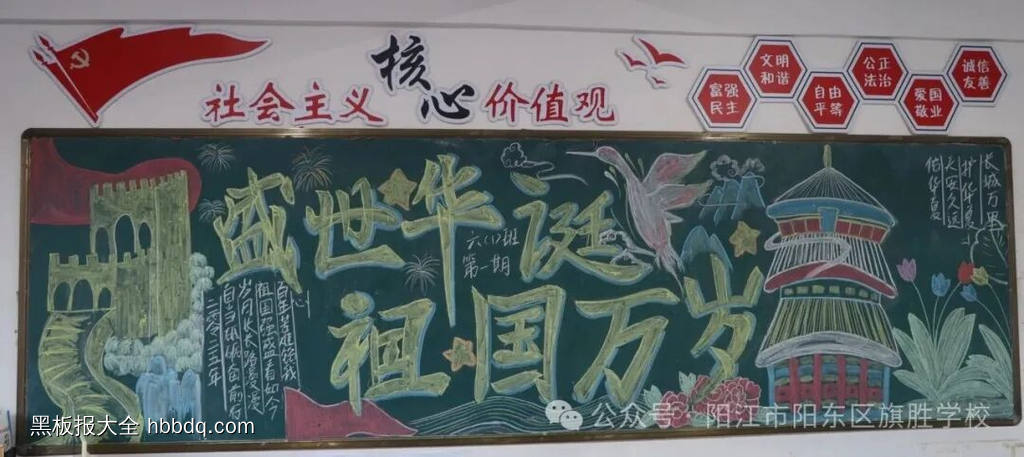 社会主义核心价值观
富强
民主
文明
和谐
自由
平等
公正
法治
爱国
敬业
诚信
友善
盛世华诞
祖国万岁
六(1)班
第一期
长城万里
护华夏
天安久远
佑华夏
祖国强盛看如今
二零二三年
黑板报大全 hbbdq.com
公众号 · 阳江市阳东区旗胜学校